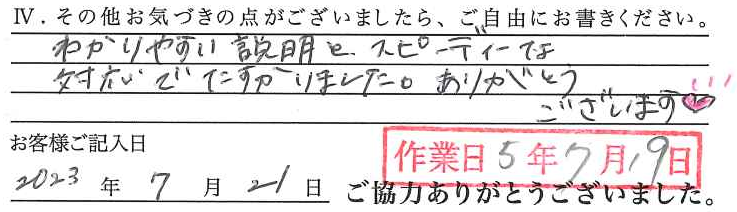 Ⅳ．その他お気づきの点がございましたら、ご自由にお書きください。
わかりやすい説明と、スピーディーな
対応でたすかりました。ありがとう
ございます
お客様ご記入日
作業日5年7月19日
2023年7月21日 ご協力ありがとうございました。